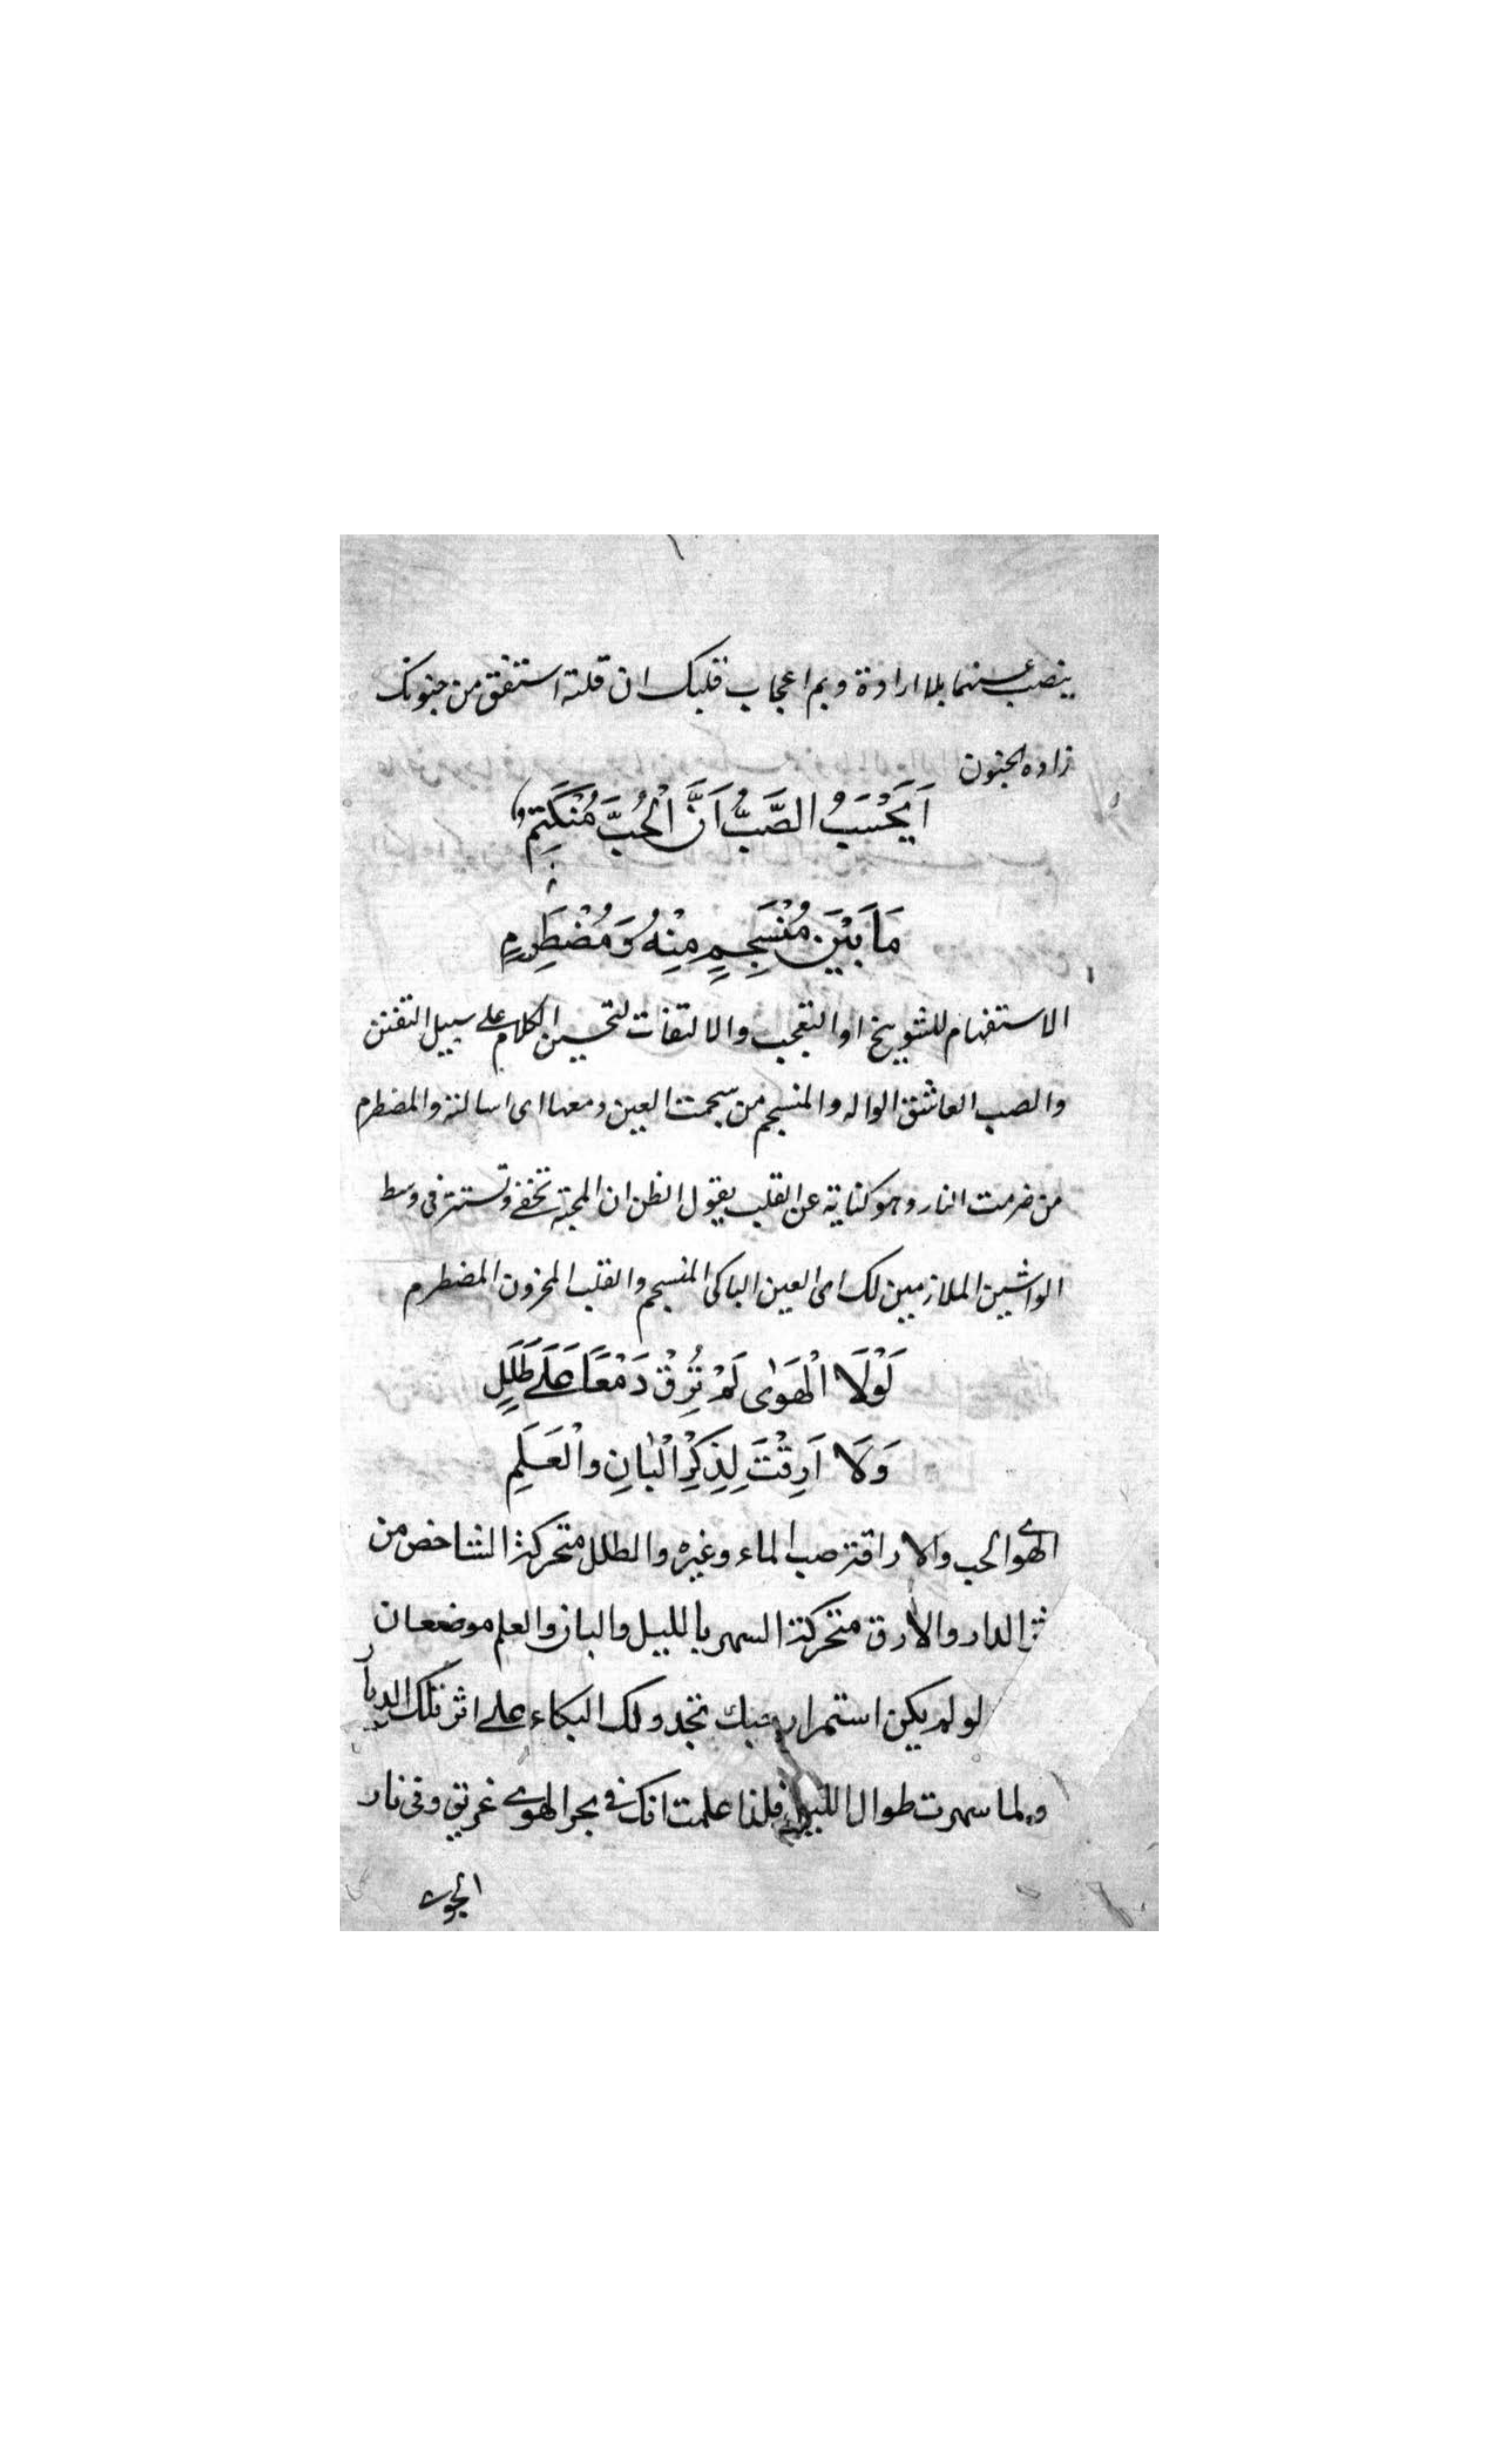 ينصب عنهما بلا ارادة وبم اعجاب قلبك ان قلته استفق من جنونك
زاده الجنون
اَيَحْسَبُ الصَّبُّ اَنَّ الْحُبَّ مُنْكَتِمٌ
مَا بَيْنَ مُنْسَجِمٍ مِنْهُ وَمُضْطَرِمٍ
الاستفهام للتوبيخ او التعجب والالتفات لتحسين الكلام على سبيل التفنن
والصب العاشق الواله والمنسجم من سجمت العين دمعها اى اسالته والمضطرم
من ضرمت النار وهو كناية عن القلب يقول انظن ان المحبة تخفى وتستتر فى وسط
الواشين الملازمين لك اى العين الباكى المنسجم والقلب المحزون المضطرم
لَوْلَا الْهَوٰى لَمْ تُرِقْ دَمْعًا عَلَى طَلَلٍ
وَلَا اَرِقْتَ لِذِكْرِ الْبَانِ والْعَلَمِ
الهوى الحب والاراقة صب الماء وغيره والطلل متحركة الشاخص من
الدار والارق متحركة السهر بالليل والبان والعلم موضعان
لو لم يكن استمرار حبك تجدد لك البكاء على اثر تلك الديار
ولما سهرت طوال الليل فلذا علمت انك فى بحر الهوى غريق وفى نار
الجوى